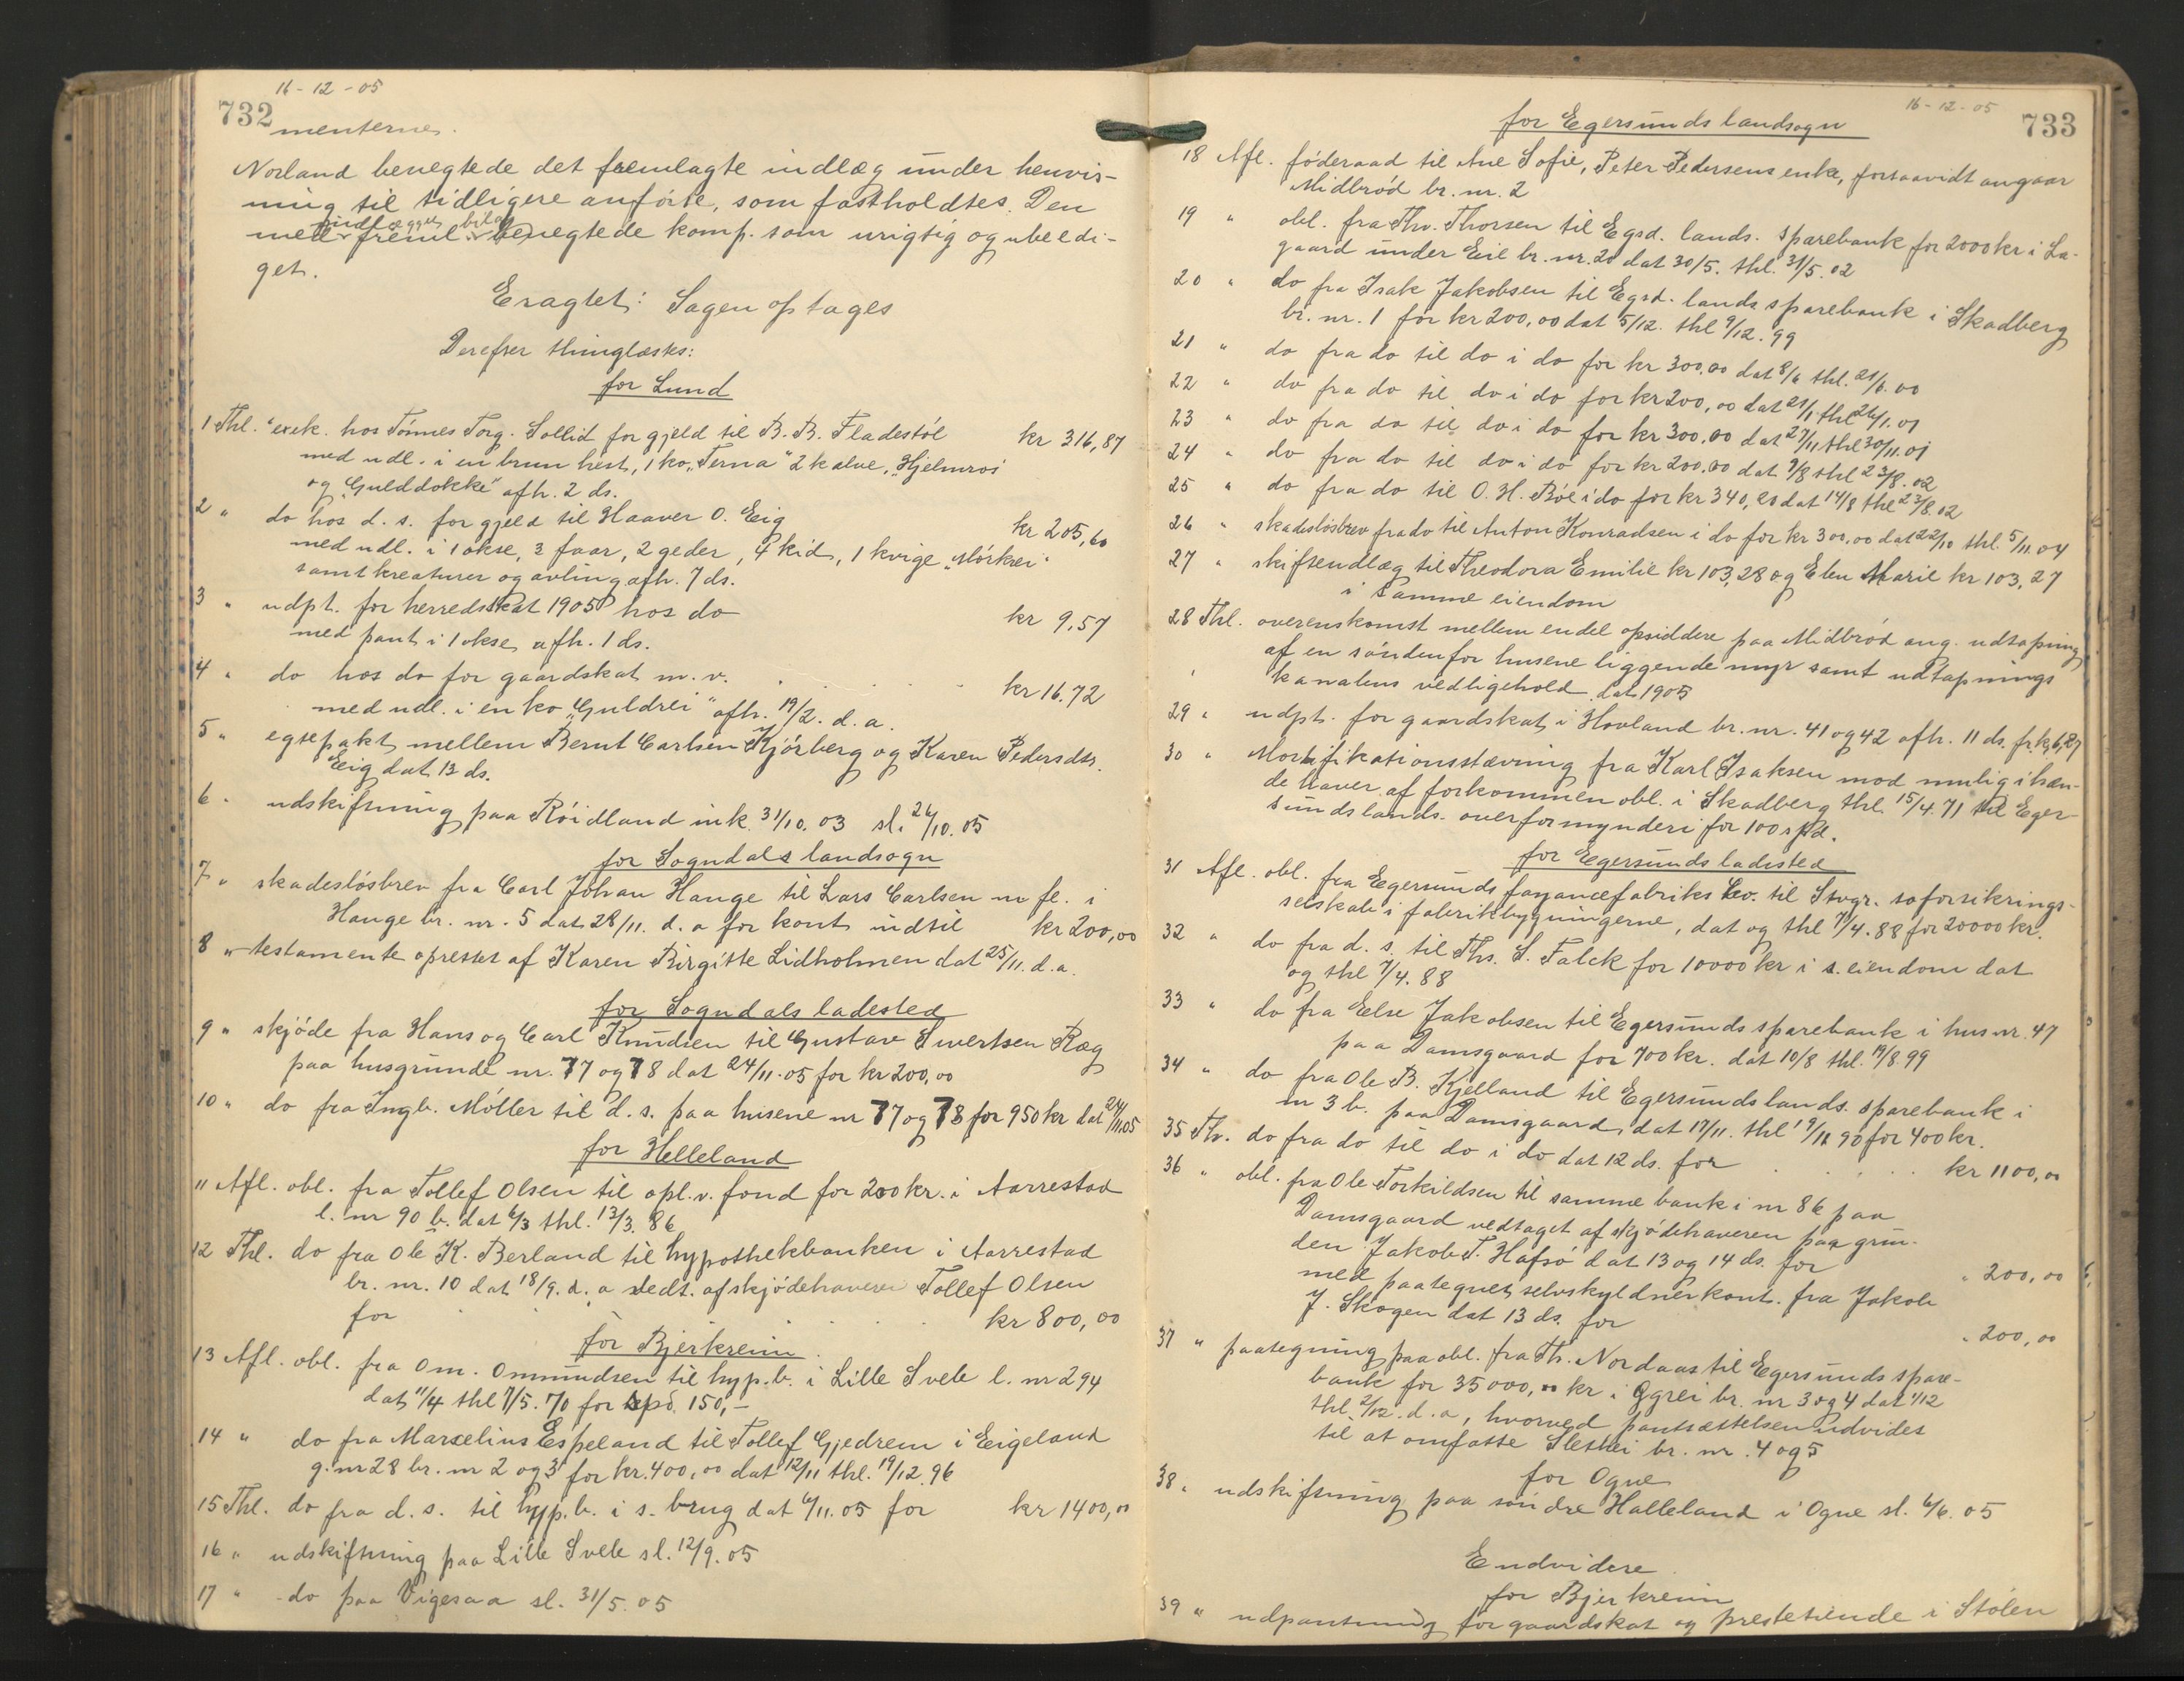 16-12-05
732
menterne.
Norland benegtede det fremlagte indlæg under henvis-
ning til tidligere anförte, som fastholdtes. Den
indlægget bilag
med freml. benegtede komp. som urigtig og ubeedi-
get.
Eragtet: Sagen optages
Derefter thinglæstes:
for Lund
1 Thl. exek. hos Tönnes Torg. Sollid for gjeld til B. B. Fladestöl kr 316,87
med udl. i en brun hest, 1 ko „Terna" 2 kalve, „Hjelmros
og „Gulddokke" afh. 2 ds.
2 " do hos d. s. for gjeld til Haaver O. Eig kr 205,60
med udl. i 1 okse, 3 faar, 2 geder, 4 kid, 1 kvige „Mörkrei"
samt kreaturer og avling afh. 7 ds.
3 " udpt. for herredsskat 1905 hos do kr 9,57
med pant i 1 okse afh. 1 ds.
4 " do hos do for gaardskat m. v. kr 16.72
med udl. i en ko „Guldrei" afh. 19/2. d. a.
5 " egtepakt mellem Bernt Carlsen Kjörberg og Karen Pedersdtr.
Eig dat 13 ds.
6 " udskiftning paa Röidland ink. 31/10. 03 sl. 26/10. 05
for Sogndals landsogn
7 " skadeslösbrev fra Carl Johan Hauge til Lars Carlsen m fl. i
Hauge br. nr. 5 dat 28/11. d. a for kont. indtil kr 200,00
8 " testamente oprettet af Karen Birgitte Lidholmen dat 25/11. d.a.
for Sogndals ladested
9 " skjöde fra Hans og Carl Knudsen til Gustav Sivertsen Ræg
paa husgrunde nr. 77 og 78 dat 24/11-05 for kr 200,00
10 " do fra Ingb. Möller til d. s. paa husene nr 77 og 78 for 950 kr dat 24/11.05
for Helleland
11 Afl. obl. fra Tollef Olsen til opl. v. fond for 200 kr. i Aarrestad
l. nr 90 b. dat 6/3 thl. 13/3. 86
12 Thl. do fra Ole K. Berland til hypothekbanken i Aarrestad
br. nr. 10 dat 18/9. d. a vedt. af skjödehaveren Tollef Olsen
for kr 800,00
for Bjerkreim
13 Afl. obl. fra Om. Ommundsen til hyp. b. i Lille Svele l. nr 294
dat 11/4 thl 7/5. 70 for spd. 150,-
14 " do fra Marselius Espeland til Tollef Gjedrem i Eigeland
g. nr 28 br. nr 2 og 3 for kr. 400,00 dat 12/11 thl. 19/12. 96
15 Thl. do fra d. s. til hyp. b. i s. brug dat 6/11. 05 for kr 1400,00
16 " udskiftning paa Lille Svele sl. 12/9. 05
17 " do paa Vigesaa sl. 31/5. 05
16-12-05
733
for Egersunds landsogn
18 Afl. föderaad til Ane Sofie, Peter Pedersens enke, forsaavidt angaar
Midbröd br. nr. 2
19 " obl. fra Thv. Thorsen til Egsd. lands. sparebank for 2000 kr i La-
gaard under Eie br. nr. 20 dat 30/5. thl. 31/5. 02
20 " do fra Isak Jakobsen til Egsd. lands sparebank i Skadberg
br. nr. 1 for kr 200,00 dat 5/12. thl 9/12. 99
21 " do fra do til do i do for kr 300,00 dat 8/6 thl. 21/6. 00
22 " do fra do til do i do for kr 200,00 dat 21/1 thl 26/1. 01
23 " do fra do til do i do for kr 300,00 dat 27/11 thl 30/11. 01
24 " do fra do til do i do for kr 200,00 dat 9/8 thl 23/8. 02
25 " do fra do til O. H. Böe i do for kr 340,20 dat 14/8 thl 23/8. 02
26 " skadeslösbrev fra do til Anton Konradsen i do for kr 300,00 dat 22/10 thl. 5/11. 04
27 " skifteudlæg til Theodora Emilie kr 103,28 og Elen Marie kr 103,27
i samme eiendom
28 Thl. overenskomst mellem endel opsiddere paa Midbröd ang. udtapning
af en söndenfor husene liggende myr samt udtapnings
kanalens vedligehold dat 1905
29 " udpt. for gaardskat i Hovland br. nr. 41 og 42 afh. 11 ds. fr. kr 6,87
30 " Mortifikationsstævning fra Karl Isaksen mod mulig ihæn-
dehaver af forkommen obl. i Skadberg thl. 15/4. 71 til Eger-
sunds lands. overformynderi for 100 spd.
for Egersunds ladested
31 Afl. obl. fra Egersunds fayancefabriks Co. til Stvgr. söforsikrings-
selskab i fabrikbygningerne, dat og thl 7/4. 88 for 20000 kr.
32 " do fra d. s. til Ths. S. Falck for 10000 kr i s. eiendom dat
og thl 7/4. 88
33 " do fra Else Jakobsen til Egersunds sparebank i hus nr. 47
paa Damsgaard for 700 kr. dat 10/8 thl. 19/8. 99
34 " do fra Ole B. Kjelland til Egersunds lands. sparebank i
nr 3 b. paa Damsgaard, dat 17/11. thl 19/12 90 for 400 kr.
35 Th. do fra do til do i do dat 12 ds. for kr 1100,00
36 " obl. fra Ole Torkildsen til samme bank i nr 86 paa
Damsgaard vedtaget af skjödehaveren paa grun-
den Jakob T. Hafsö dat 13 og 14 ds. for " 200,00
med paategnet selvskyldnerkont. fra Jakob
J. Skogen dat 13 ds. for " 200,00
37 " paategning paa obl. fra Th. Nordaas til Egersunds spare-
bank for 35000,00 kr i Ggrei br. nr 3 og 4 dat 1/12
thl. 2/12. d. a, hvorved pantsættelsen udvides
til at omfatte Slethei br. nr. 4 og 5
for Ogne
38 " udskiftning paa söndre Halleland i Ogne sl. 6/6. 05
Endvidere
for Bjerkreim
39 " udpantning for gaardskat og prestetiende i Stölen